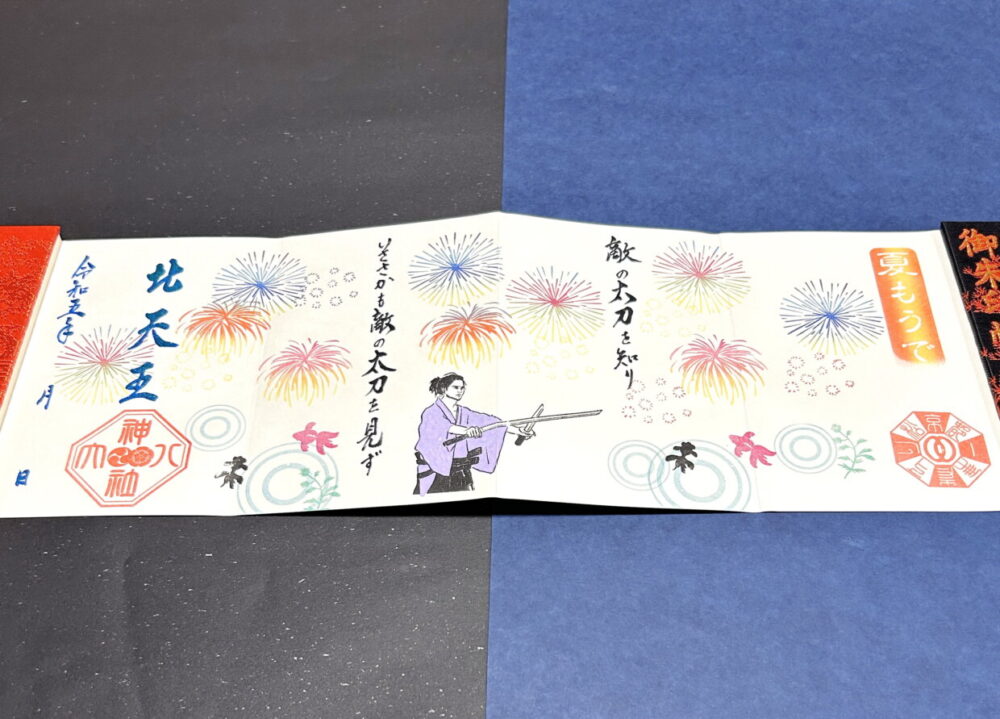 御朱印
夏もうで
敵の太刀を知り
いさゝかも敵の太刀を見ず
北天王
八大神社
令和五年
月
日